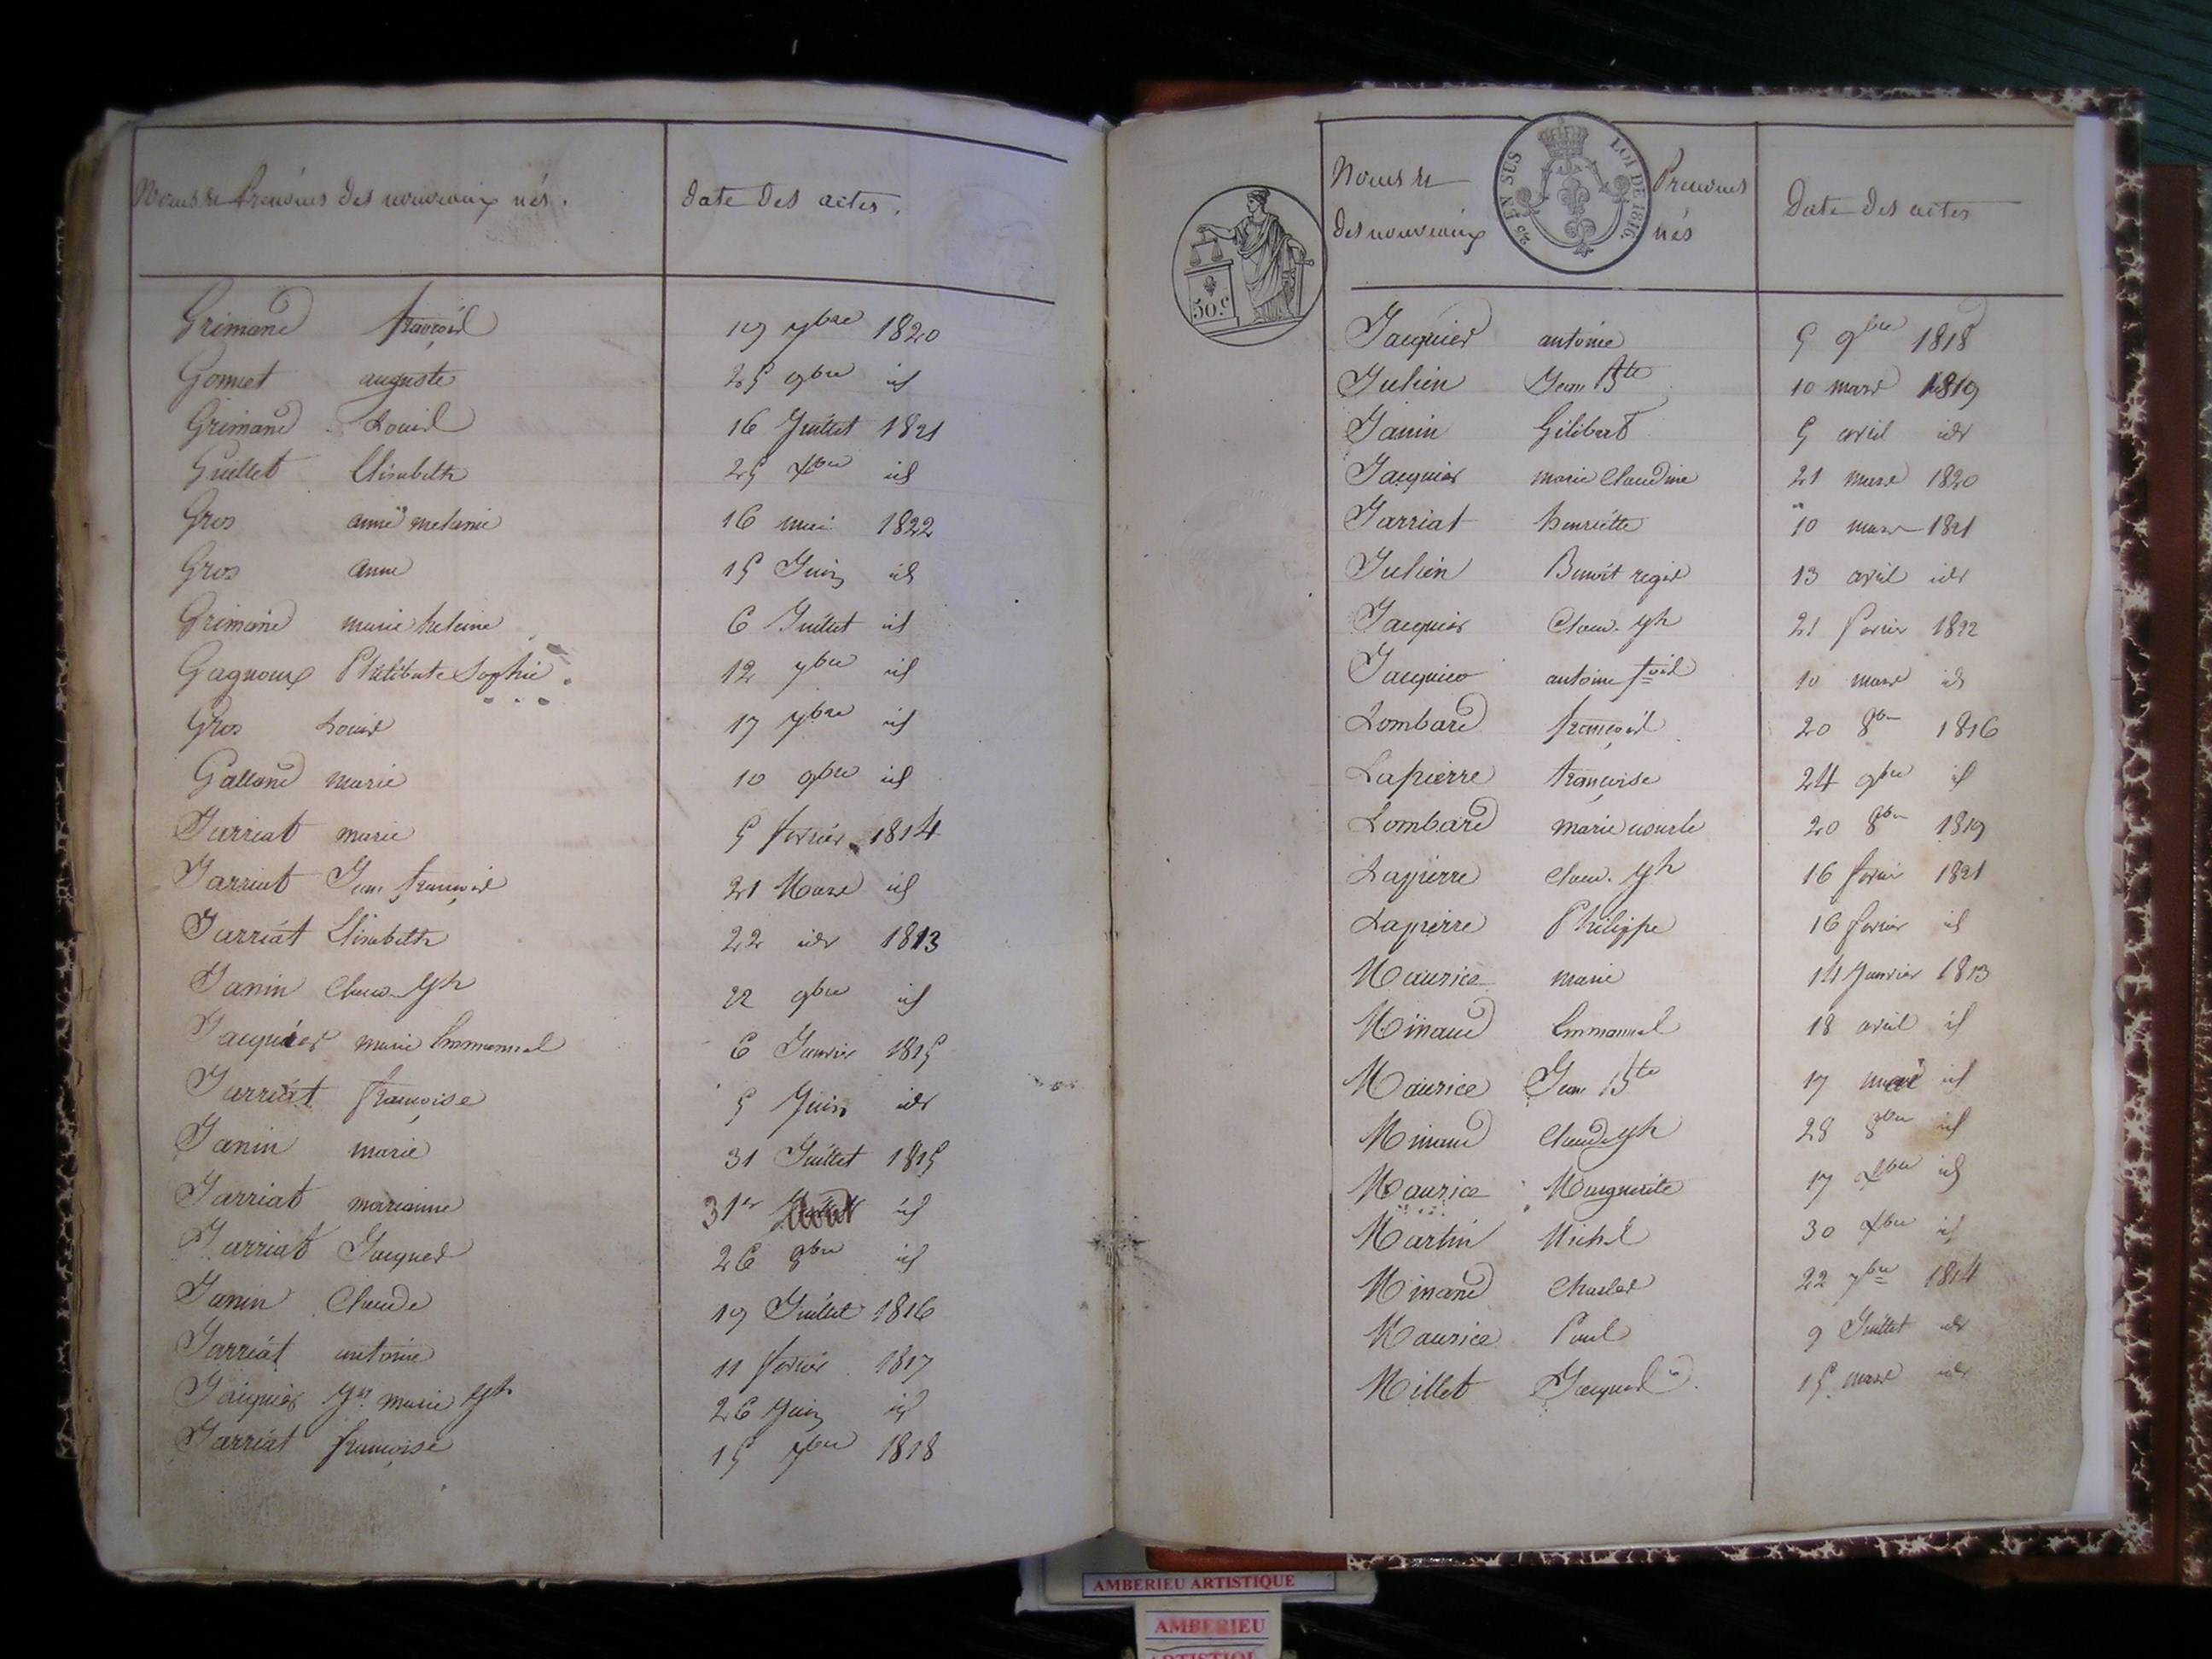 Noms & Prénoms des nouveaux nés. date des actes.
Grimand françois 19 7bre 1820
Gonnet auguste 25 9bre id
Grimand Louis 16 Juillet 1821
Guillet Elisabeth 25 Xbre id
Gros anne melanie 16 mai 1822
Gros anne 15 Juin id
Grimand marie heleine 6 Juillet id
Gagnoux Philiberte Sophie 12 7bre id
Gros Louis 17 7bre id
Galland marie 10 9bre id
Jarriat marie 5 fevrier 1814
Jarriat Jean françois 21 Mars id
Jarriat Elisabeth 22 idr 1813
Janin Claude Jph 22 9bre id
Jacquier marie Emmanuel 6 Janvier 1815
Jarriat françoise 5 Juin idr
Janin marie 31 Juillet 1815
Jarriat marianne 31er Aout id
Jarriat Jacques 26 8bre id
Janin Claude 19 Juillet 1816
Jarriat antoine 11 fevrier 1817
Jacquier marie Jph 26 Juin id
Jarriat françoise 15 7bre 1818
Noms & Prenoms
des nouveaux nés Date des actes
EN SUS LOI DE 1816.
50.c
Jacquier antoine 5 9bre 1818
Julien Jean Bte 10 mars 1819
Janin Gilibert 5 avril idr
Jacquier marie Claudine 21 mars 1820
Jarriat henriette 10 mars 1821
Julien Benoit regis 13 avril idr
Jacquier Claude Jph 21 fevrier 1822
Jacquier antoine fois 10 mars id
Lombard françois 20 8bre 1816
Lapierre françoise 24 9bre id
Lombard marie 20 8bre 1819
Lapierre Claude Jph 16 fevrier 1821
Lapierre Philippe 16 fevrier id
Maurice marie 14 Janvier 1813
Minaud Emmanuel 18 avril id
Maurice Jean Bte 17 mai id
Minaud Claude Jph 28 8bre id
Maurice Marguerite 17 Xbre id
Martin Michel 30 Xbre id
Minand Charles 22 7bre 1814
Maurice Paul 9 Juillet idr
Millet Jacques 15 mars idr
AMBERIEU ARTISTIQUE
AMBERIEU
ARTISTIQUE